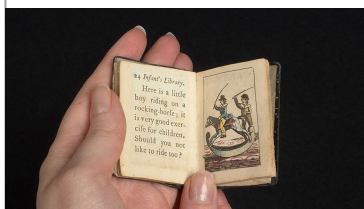 24 Infant's Library.
Here is a little
boy riding on a
rocking-horse; it
is very good exer-
cise for children.
Should you not
like to ride too?